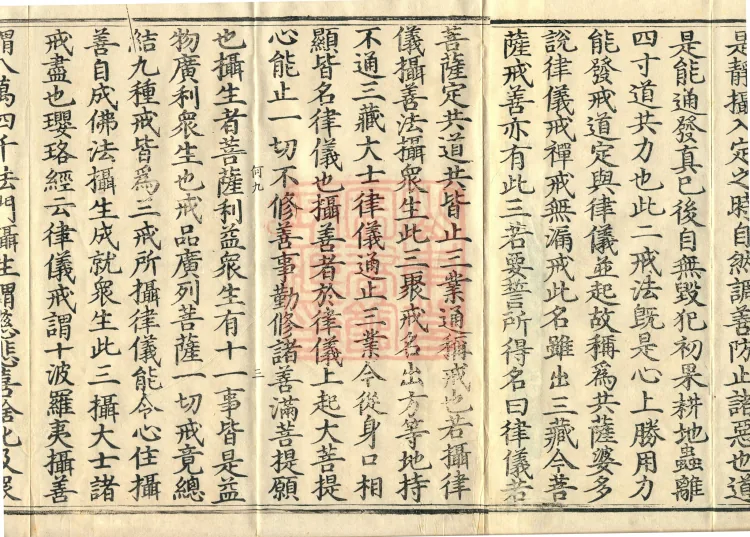 是靜攝入定之時自然調善防止諸惡也道
是能通發真已後自無毀犯初果耕地蟲離
四寸道共力也此二戒法既是心上勝用力
能發戒道定與律儀並起故稱爲共薩婆多
說律儀戒禪戒無漏戒此名雖出三藏今菩
薩戒善亦有此三若要誓所得名曰律儀若
菩薩定共道共皆止三業通稱戒也若攝律
儀攝善法攝衆生此三聚戒名出方等地持
不通三藏大士律儀通止三業今從身口相
顯皆名律儀也攝善者於律儀上起大菩提
心能止一切不修善事勤修諸善滿菩提願
何九
三
也攝生者菩薩利益衆生有十一事皆是益
物廣利衆生也戒品廣列菩薩一切戒竟總
結九種戒皆爲三戒所攝律儀能令心住攝
善自成佛法攝生成就衆生此三攝大士諸
戒盡也瓔珞經云律儀戒謂十波羅夷攝善
謂八萬四千法門攝生謂慈悲喜捨化及衆